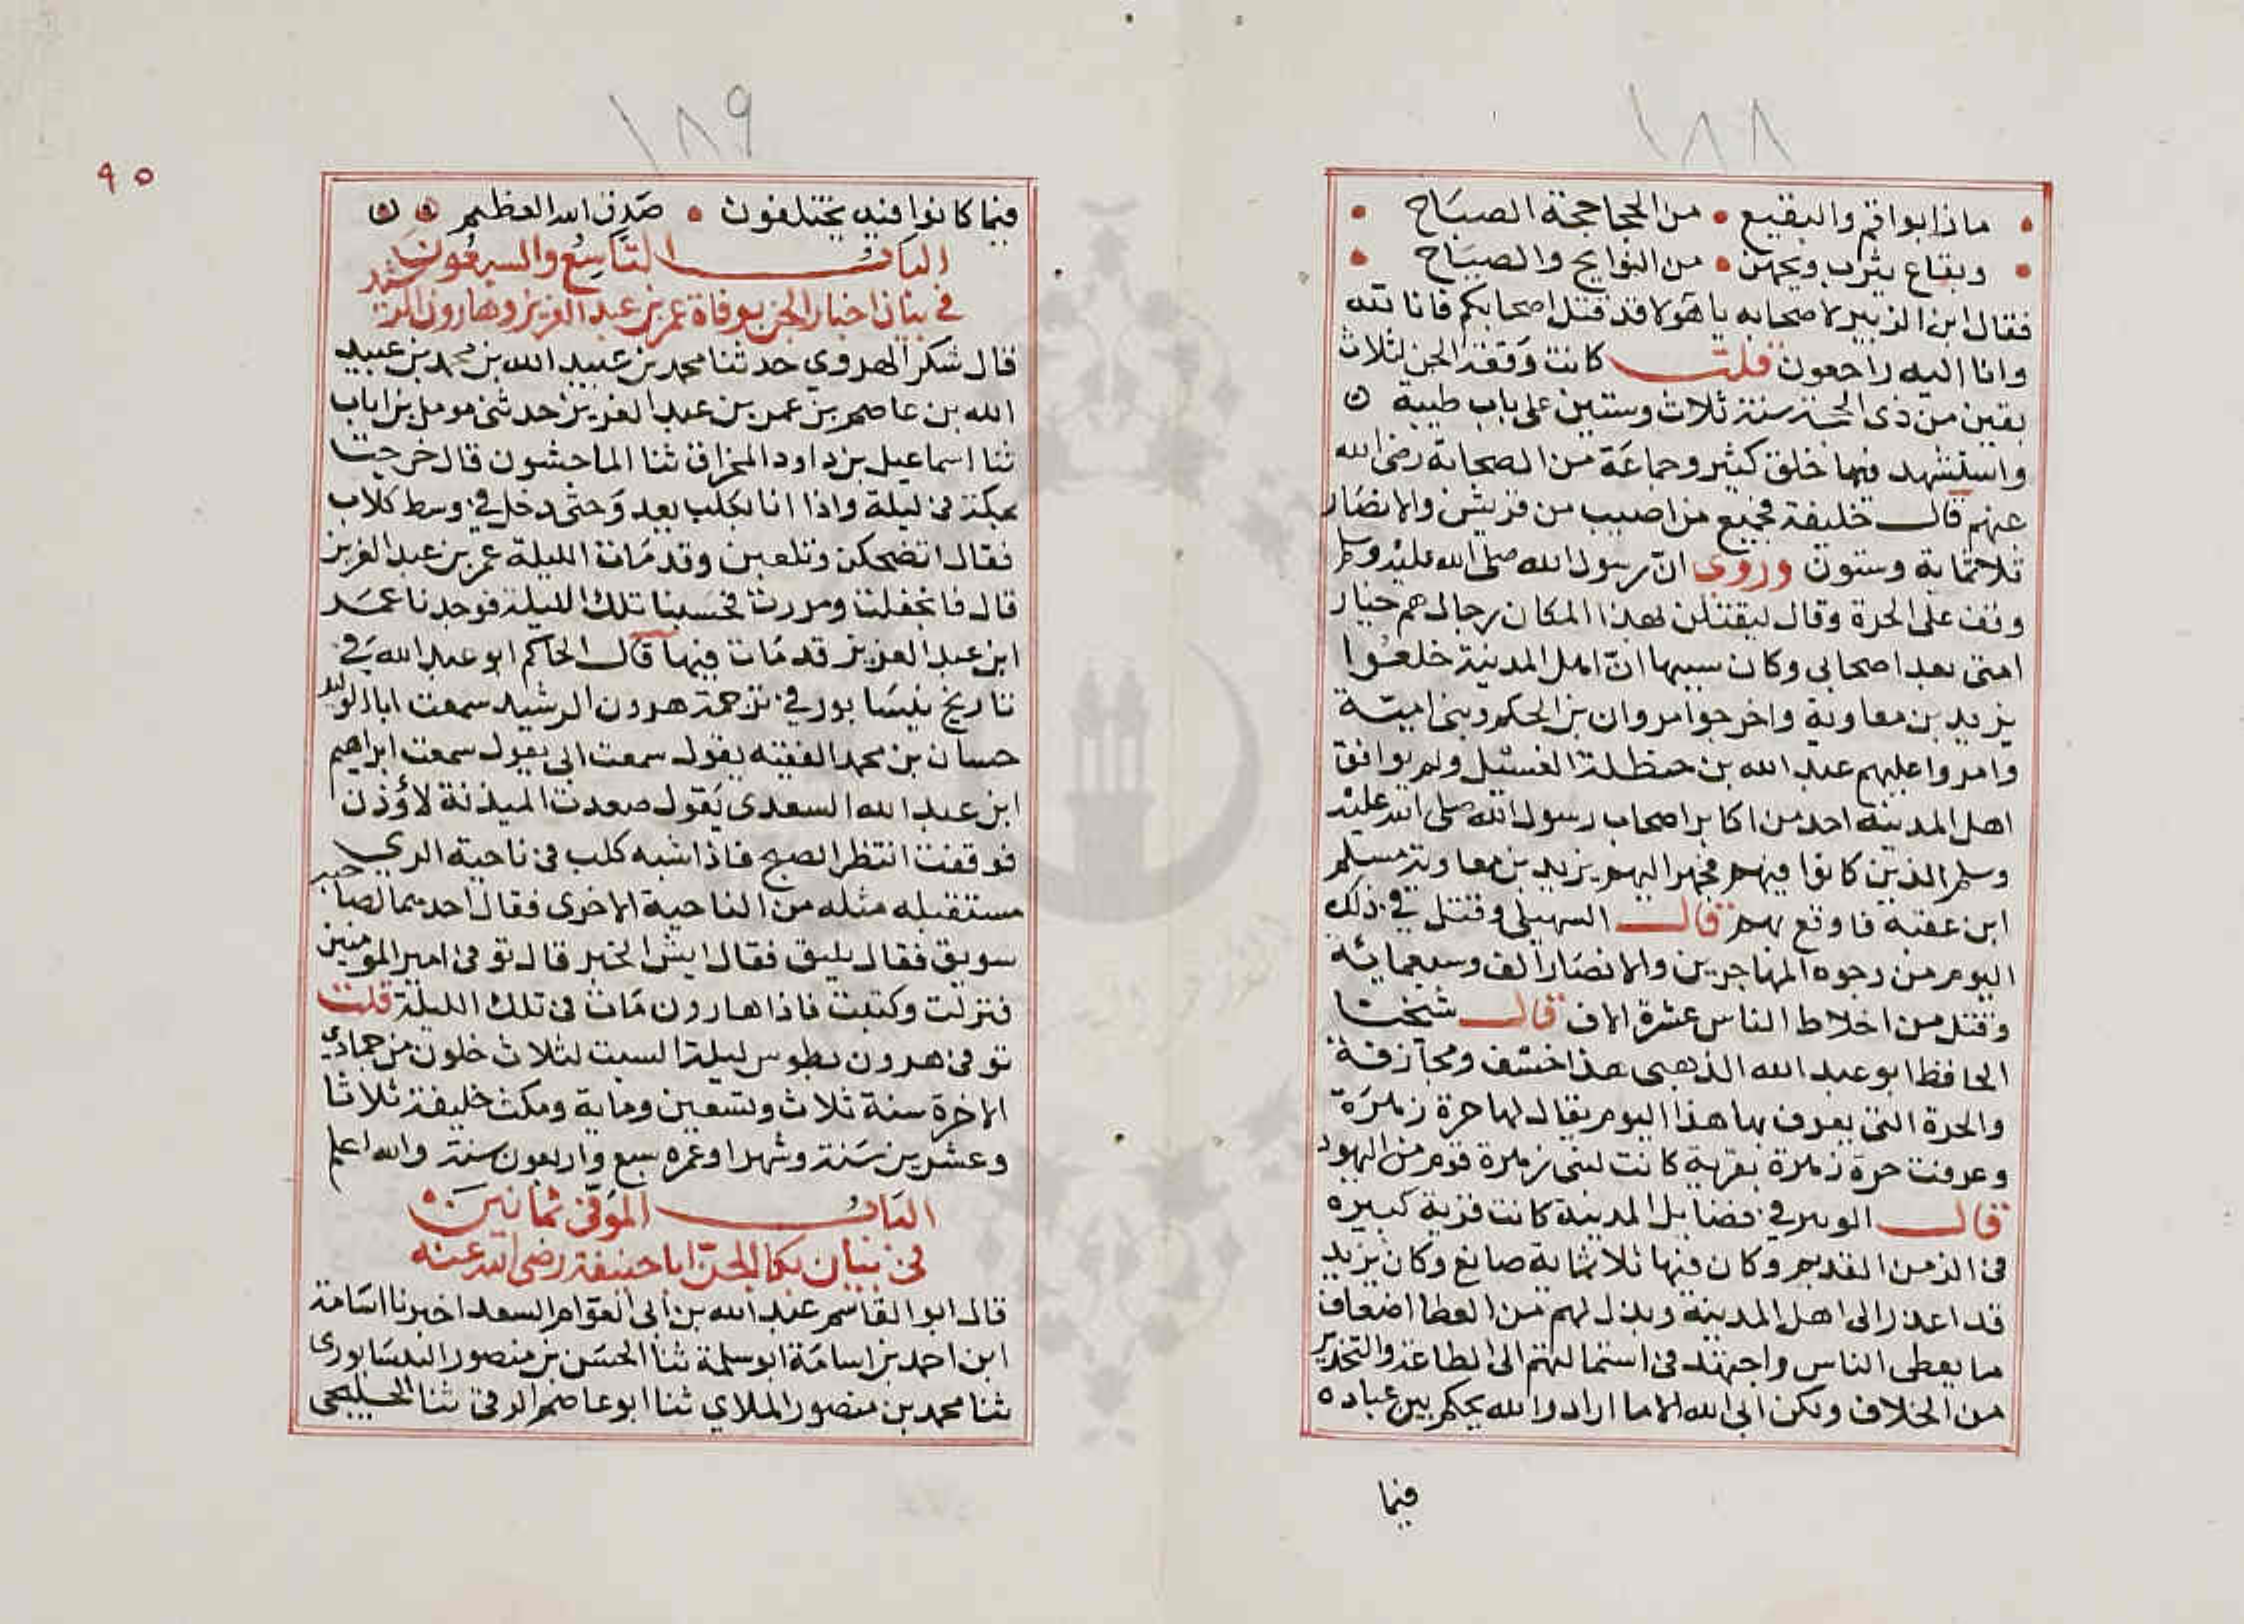 ١٨٨
• ماذا بواقم والبقيع • من الجحاجحة الصباح •
• وبقاع يثرب ويحهن • من النوايح والصياح •
فقال ابن الزبير لاصحابه يا هولا قد قتل اصحابكم فانا لله
وانا اليه راجعون قلت كانت وقعة الحرة لثلاث
بقين من ذى الحجة سنة ثلاث وستين على باب طيبة
واستشهد فيها خلق كثير وجماعة من الصحابة رضى الله
عنهم قال خليفة فجميع من اصيب من قريش والانصار
ثلاثماية وستون وروى ان رسول الله صلى الله عليه وسلم
وقف على الحرة وقال ليقتلن بهذا المكان رجال هم خيار
امتى بعد اصحابى وكان سببها ان اهل المدينة خلعوا
يزيد بن معاوية واخرجوا مروان بن الحكم وبنى امية
وامروا عليهم عبد الله بن حنظلة الغسيل ولم يوافق
اهل المدينة احد من اكابر اصحاب رسول الله صلى الله عليه
وسلم الذين كانوا فيهم فجهز اليهم يزيد بن معاوية مسلم
ابن عقبة فاوقع بهم قال السهيلى وقتل فى ذلك
اليوم من وجوه المهاجرين والانصار الف وسبعمائة
وقتل من اخلاط الناس عشرة الاف قال شيخنا
الحافظ ابو عبد الله الذهبى هذا خسف ومجازفة
والحرة التى يعرف بها هذا اليوم يقال لها حرة زهرة
وعرفت حرة زهرة بقرية كانت لبنى زهرة قوم من اليهود
قال الوبير فى فضايل المدينة كانت قرية كبيرة
فى الزمن القديم وكان فيها ثلاثماية صايغ وكان يزيد
قد اعذر الى اهل المدينة وبذل لهم من العطا اضعاف
ما يعطى الناس واجتهد فى استمالتهم الى الطاعة والتحذير
من الخلاف ولكن ابى الله الا ما اراد والله يحكم بين عباده
فيما
١٨٩
٩٥
فيما كانوا فيه يختلفون • صدق الله العظيم
الباب التاسع والسبعون
فى بيان اخبار الجن بوفاة عمر بن عبد العزيز وهارون الرشيد
قال شكر الهروي حدثنا محمد بن عبيد الله بن محمد بن عبيد
الله بن عاصم بن عمر بن عبد العزيز حدثنى مومل بن اهاب
ثنا اسماعيل بن داود المخراق ثنا الماجشون قال خرجت
بمكة فى ليلة واذا انا بكلب يعدو حتى دخل في وسط كلاب
فقال اتضحكن وتلعبن وقد مات الليلة عمر بن عبد العزيز
قال فانجفلت ومررت فحسبنا تلك الليلة فوجدنا عمر
ابن عبد العزيز قد مات فيها قال الحاكم ابو عبد الله في
تاريخ نيسابور في ترجمة هرون الرشيد سمعت ابا الوليد
حسان بن محمد الفقيه يقول سمعت ابى يقول سمعت ابراهيم
ابن عبد الله السعدى يقول صعدت الميذنة لاؤذن
فوقفت انتظر الصبح فاذا شبه كلب فى ناحية الري
مستقبله مثله من الناحية الاخرى فقال احدهما لصاحبه
سويق فقال بليق فقال ايش الخبر قال توفى امير المومنين
فنزلت وكتبت فاذا هارون مات فى تلك الليلة قلت
توفى هرون بطوس ليلة السبت لثلاث خلون من جمادي
الاخرة سنة ثلاث وتسعين وماية ومكث خليفة ثلاثا
وعشرين سنة وشهرا وعمره سبع واربعون سنة والله اعلم
الباب الموفى ثمانين
فى بيان بكا الجن ابا حنيفة رضى الله عنه
قال ابو القاسم عبد الله بن ابى العوام السعد اخبرنا اسامة
ابن احمد بن اسامة ابو سلمة ثنا الحسن بن منصور النيسابورى
ثنا محمد بن منصور الملاي ثنا ابو عاصم الرقى ثنا الخليجى